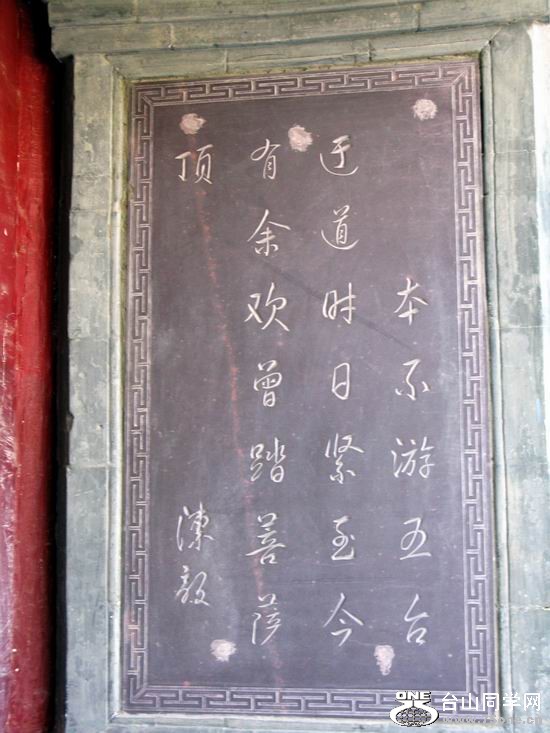 本不游五台
迂道时日紧至今
有余欢曾踏菩萨
顶
ONE 台山同学网